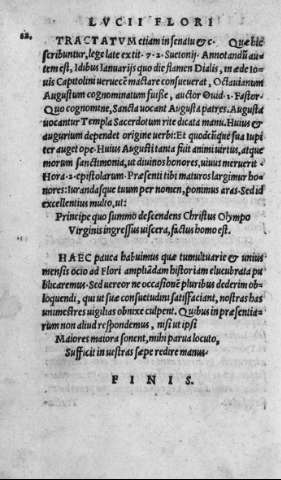 LVCII FLORI
TRACTATVM etiam in senatu &c. Quæ hic
scribuntur, lege late ex tit. 7. 2. Suetonij. Annotandũ au
tem est, Idibus Ianuarijs quo die flamen Dialis, in æde Io
vis Capitolini vervecẽ mactare consueverat, Octavianum
Augustum cognominatum fuisse, auctor Ovid. 1. Fastor.
Quo cognomine, Sancta vocant Augusta patres. Augusta
vocantur Templa Sacerdotum rite dicata manu. Huius &
augurium dependet origine verbi: Et quodcũque sua Iup
iter auget ope. Huius Augusti tanta fuit animi virtus, atque
morum sanctimonia, ut divinos honores, vivus meruerit
Hora. 2. epistolarum. Præsenti tibi maturos largimur ho
nores: Iurandasque tuum per nomen, ponimus aras. Sed id
excellentius multo, ut:
Principe quo summo descendens Christus Olympo
Virginis ingressus viscera, factus homo est.
HAEC pauca habuimus quæ tumultuarie & unius
mensis ocio ad Flori ampliãdam historiam elucubrata pu
blicaremus. Sed vereor ne occasionẽ pluribus dederim ob
loquendi, qui ut suæ consuetudini satisfaciant, nostras has
unimestres vigilias obnixe culpent. Quibus in præsentia-
rum non aliud respondemus, nisi ut ipsi
Maiores maiora sonent, mihi parva locuto,
Sufficit in vestras sæpe redire manus.
FINIS.